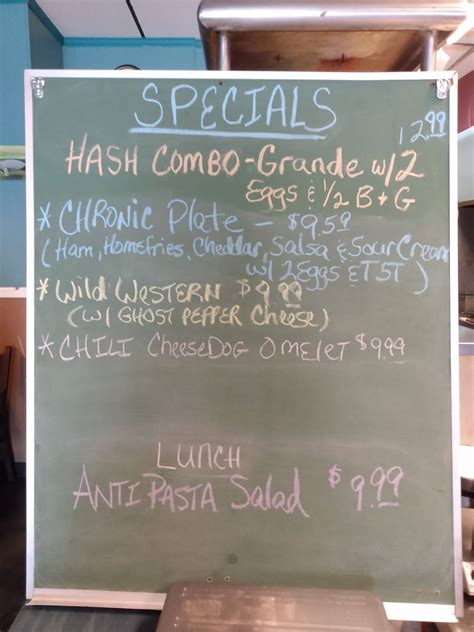 SPECIALS
12.99
HASH COMBO-Grande w/2
Eggs & 1/2 B+G
* CHRONIC Plate - $9.59
(Ham, Homefries, Cheddar, Salsa & Sour Cream
w/ 2 Eggs & TST)
* Wild Western $9.99
(W/ GHOST PEPPER Cheese)
* CHILI CheeseDOG OmeleT $9.99
LUNCH
ANTI PASTA Salad $9.99